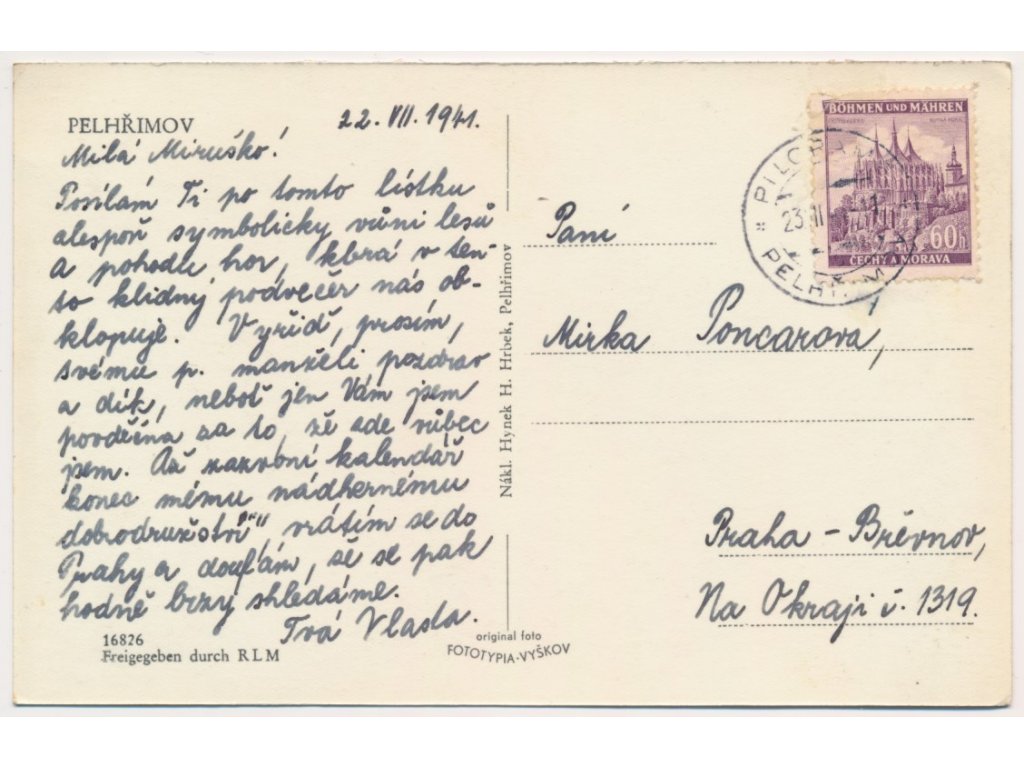 PELHŘIMOV
22. VII. 1941.
Milá Miruško!
Posílám Ti po tomto lístku
alespoň symbolicky vůni lesů
a pohodu hor, kbrá v ten-
to klidný podvečer nás ob-
klopuje. Vyřiď, prosím,
svému p. manželi pozdrav
a dík, neboť jen Vám jsem
povděčna za to, že zde vůbec
jsem. Až zazvoní kalendář
konec mému nádhernému
dobrodružství", vrátím se do
Prahy a doufám, že se pak
hodně brzy shledáme.
Tvá Vlasta.
16826
Freigegeben durch RLM
original foto
FOTOTYPIA-VYŠKOV
Nákl. Hynek H. Hrbek, Pelhřimov
BÖHMEN UND MÄHREN
60h
ČECHY A MORAVA
PELHŘ. M
Paní
Mirka Poncarova,
Praha - Břevnov,
Na Okraji č. 1319.